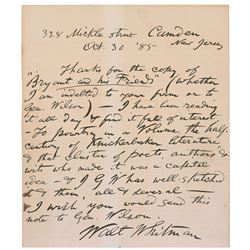 328 Mickle street Camden
Oct. 30 '85 New Jersey
Thanks for the copy of
"Bryant and his Friends" (whether
I am indebted to your firm or to
Gen. Wilson) – I have been reading
it all day & find it full of interest
– To pourtray in a Volume the half-
century of Knickerbocker literature
& that cluster of poets, authors &
wits who made it was a capital
idea – & J G W has well sketched
it & them all & several
I wish you would send this
note to Gen. Wilson
Walt Whitman